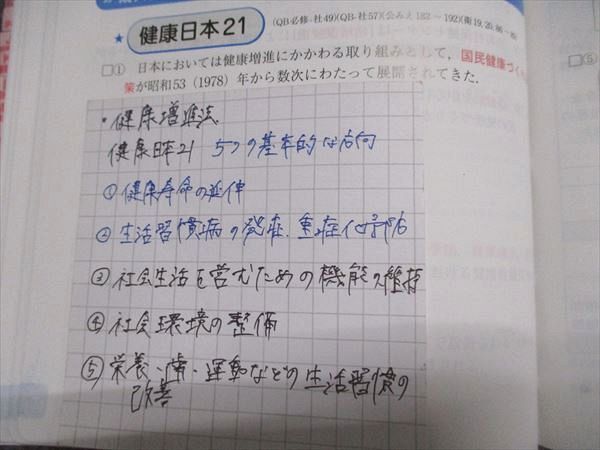 ★ 健康日本21 (QB必修-社49)(QB-社57)(公みえ182～192)(衛19, 20, 86～
□① 日本においては健康増進にかかわる取り組みとして，国民健康づく
策が昭和53（1978）年から数次にわたって展開されてきた．
・健康増進法
健康日本21 5つの基本的な方向
①健康寿命の延伸
②生活習慣病の発症、重症化予防
③社会生活を営むための機能の維持
④社会環境の整備
⑤栄養・歯・運動などの生活習慣の
改善
□⑤